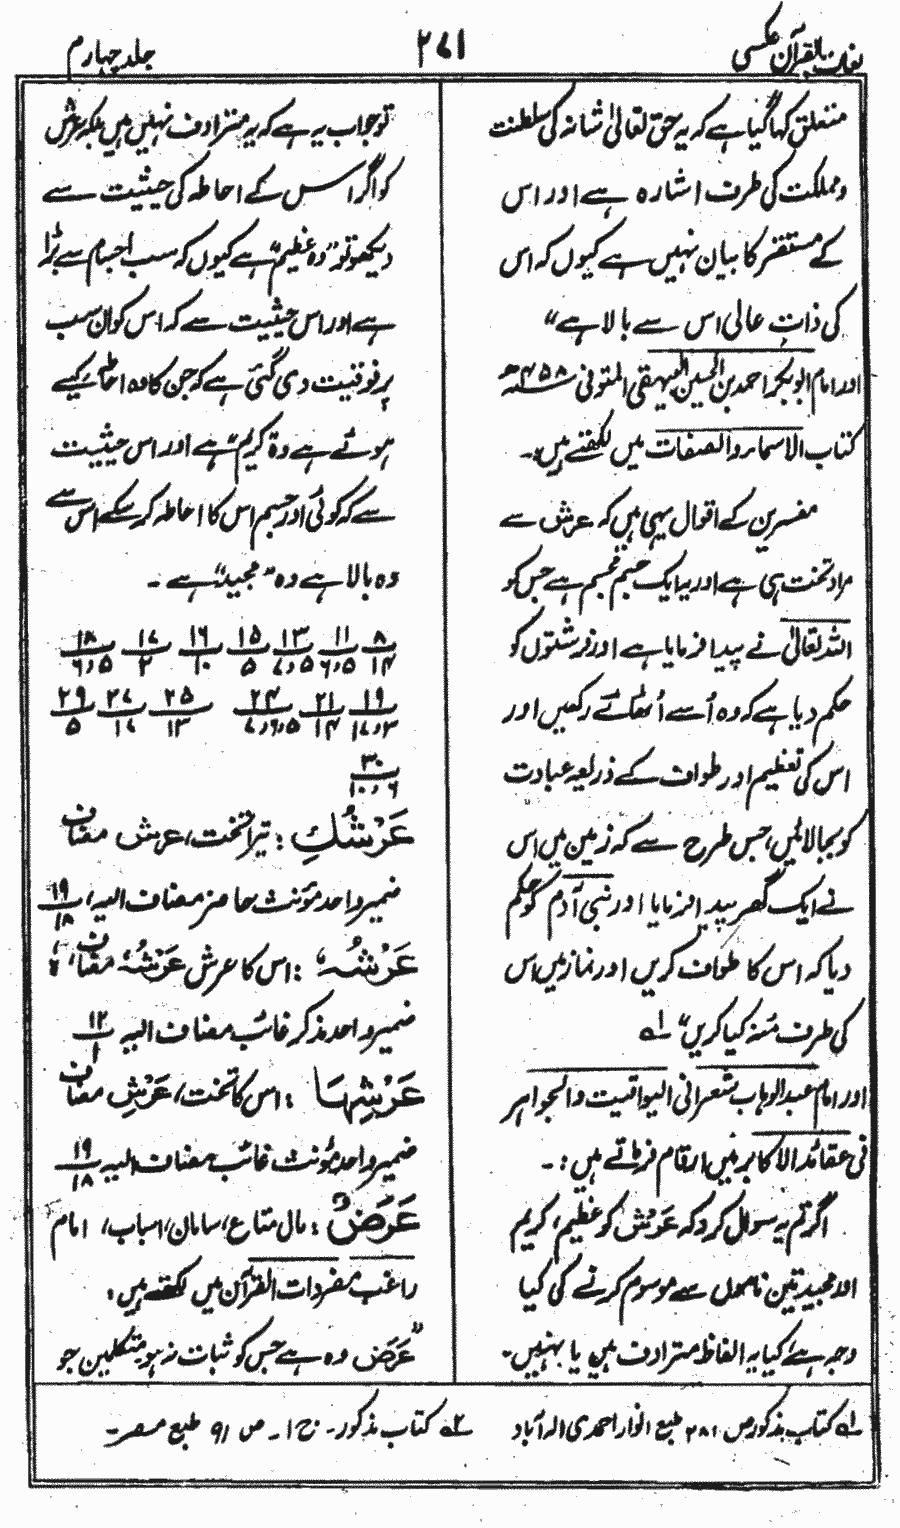 لغات القرآن عکسی
۲۷۱
جلد چہارم
متعلق کہا گیا ہے کہ یہ حق تعالیٰ شانہ کی سلطنت
ومملکت کی طرف اشارہ ہے اور اس
کے مستقر کا بیان نہیں ہے کیوں کہ اس
کی ذات عالی اس سے بالا ہے"
اور امام ابوبکر احمد بن الحسین البیہقی المتوفی ۴۵۸ھ
کتاب الاسماء والصفات میں لکھتے ہیں:۔
مفسرین کے اقوال یہی ہیں کہ عرش سے
مراد تخت ہی ہے اور یہ ایک جسم مجسم ہے جس کو
اللہ تعالیٰ نے پیدا فرمایا ہے اور فرشتوں کو
حکم دیا ہے کہ وہ اُسے اُٹھائے رکھیں اور
اس کی تعظیم اور طواف کے ذریعہ عبادت
کو بجا لائیں، جس طرح سے کہ زمین میں اس
نے ایک گھر پیدا فرمایا اور نبی آدم کو حکم
دیا کہ اس کا طواف کریں اور نماز میں اس
کی طرف منہ کیا کریں" ۱؎
اور امام عبدالوہاب شعرانی الیواقیت والجواہر
فی عقائد الاکابر میں ارقام فرماتے ہیں :۔
اگر تم یہ سوال کرو کہ عَرْش کو عظیم، کریم
اور مجید تین ناموں سے موسوم کرنے کی کیا
وجہ ہے؟ کیا یہ الفاظ مترادف ہیں یا نہیں۔
تو جواب یہ ہے کہ یہ مترادف نہیں ہیں بلکہ عرش
کو اگر اس کے احاطہ کی حیثیت سے
دیکھو تو "وہ عظیم" ہے کیوں کہ سب اجسام سے بڑا
ہے اور اس حیثیت سے کہ اس کو ان سب
پر فوقیت دی گئی ہے کہ جن کا وہ احاطہ کیے
ہوئے ہے وہ "کریم" ہے اور اس حیثیت
سے کہ کوئی اور جسم اس کا احاطہ کر سکے اس سے
وہ بالا ہے وہ "مجید" ہے ۔
۸/۱۴ ۱۱/۵،۶ ۱۳/۵،۷ ۱۵/۵ ۱۶/۱۰ ۱۷/۲ ۱۸/۵،۶
۱۹/۳،۱۷ ۲۱/۱۴ ۲۴/۵،۶،۷ ۲۵/۱۳ ۲۷/۱۷ ۲۹/۵
۳۰/۶،۱۰
عَرْشُكِ : تیرا تخت، عرش مضاف
ضمیر واحد مؤنث حاضر مضاف الیہ، ۱۹/۱۸
عَرْشُہٗ : اس کا عرش عَرْشُہٗ مضاف،
ضمیر واحد مذکر غائب مضاف الیہ ۱۲/۱
عَرْشِہَا : اس کا تخت، عَرْشِ مضاف
ضمیر واحد مؤنث غائب مضاف الیہ ۱۹/۱۸
عَرَضٌ : مال متاع، سامان، اسباب، امام
راغب مفردات القرآن میں لکھتے ہیں :
"عَرَض وہ ہے جس کو ثبات نہ ہو متکلمین جو
۱؎ کتاب مذکور ص ۲۸۱ طبع انوار احمدی الہ آباد
۲؎ کتاب مذکور۔ ج ۱۔ ص ۹۱ طبع مصر۔